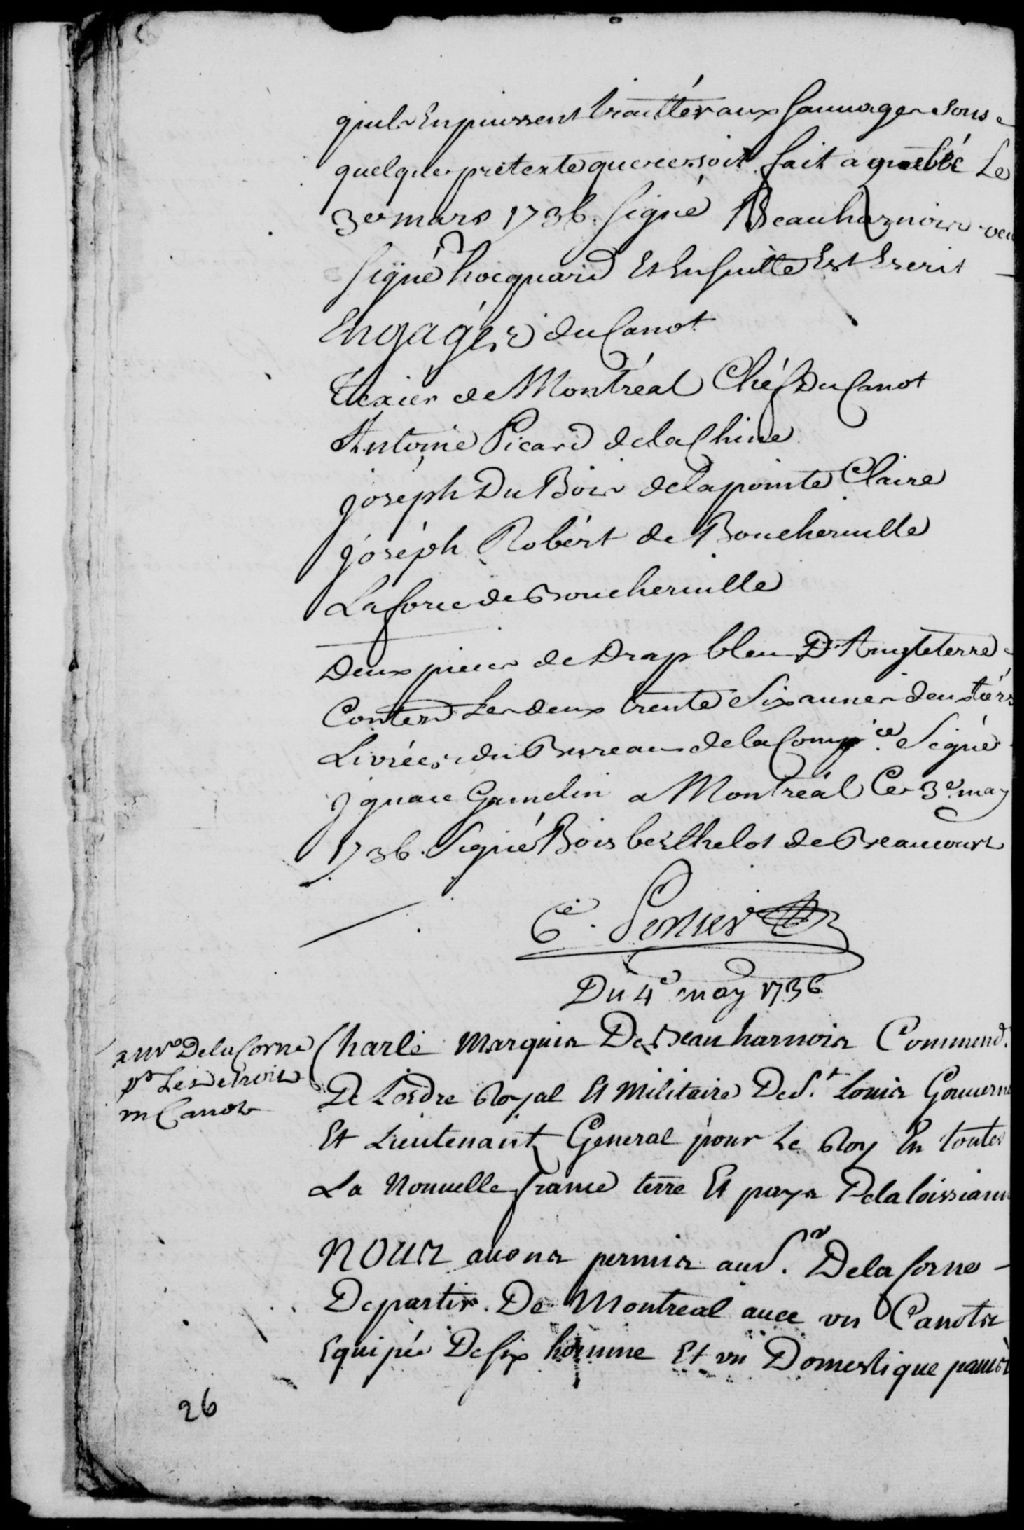 quils Enpuissent traitter aux Sauvages sous
quelques pretexte que ce soit fait a quebec Le
3er mars 1736. Signé Beauharnois
Signé hocquard Et Ensuitte Est Escrit
Engagés du Canot
Texier de Montréal Chéf Du Canot
Antoine Picard de la Chine
joséph Du Bois de la pointe Claire
joséph Robért de Boucherville
de Boucherville
Deux pieces de Drap bleu D'Angleterre
Conten Les deux trente Six aunes deux tiérs
Livrées du Bureau de la Compie. Signé
Ignace Gamelin a Montréal Ce 3e may
1736. Signé Bois berthelot de Beaucourt
Du 4e may 1736
au sr De la Corne
pr Le detroit
un Canot
Charle Marquis De Beauharnois Commend.
De Lordre Royal Et Militaire De St. Louis Gouvern
Et Lieutenant General pour Le Roy En toutte
La Nouvelle france terre Et pays De la loissiann
NOUS avons permis au Sr. De la Corne
De partir De Montreal avec un Canots
Equipée De six homme Et un Domestique pour
26